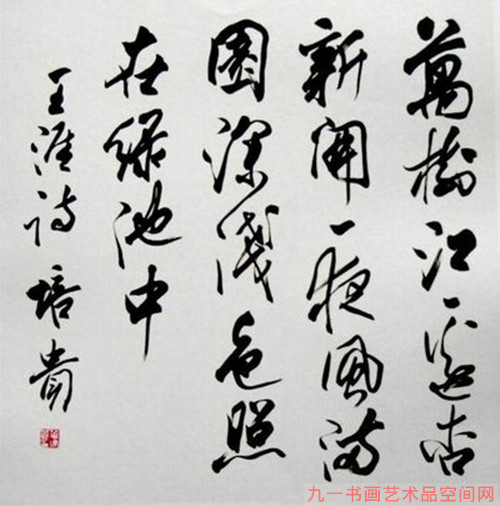 萬樹江邊杏
新開一夜風滿
園深淺色照
在綠池中
王涯詩 培貴
九一书画艺术品空间网